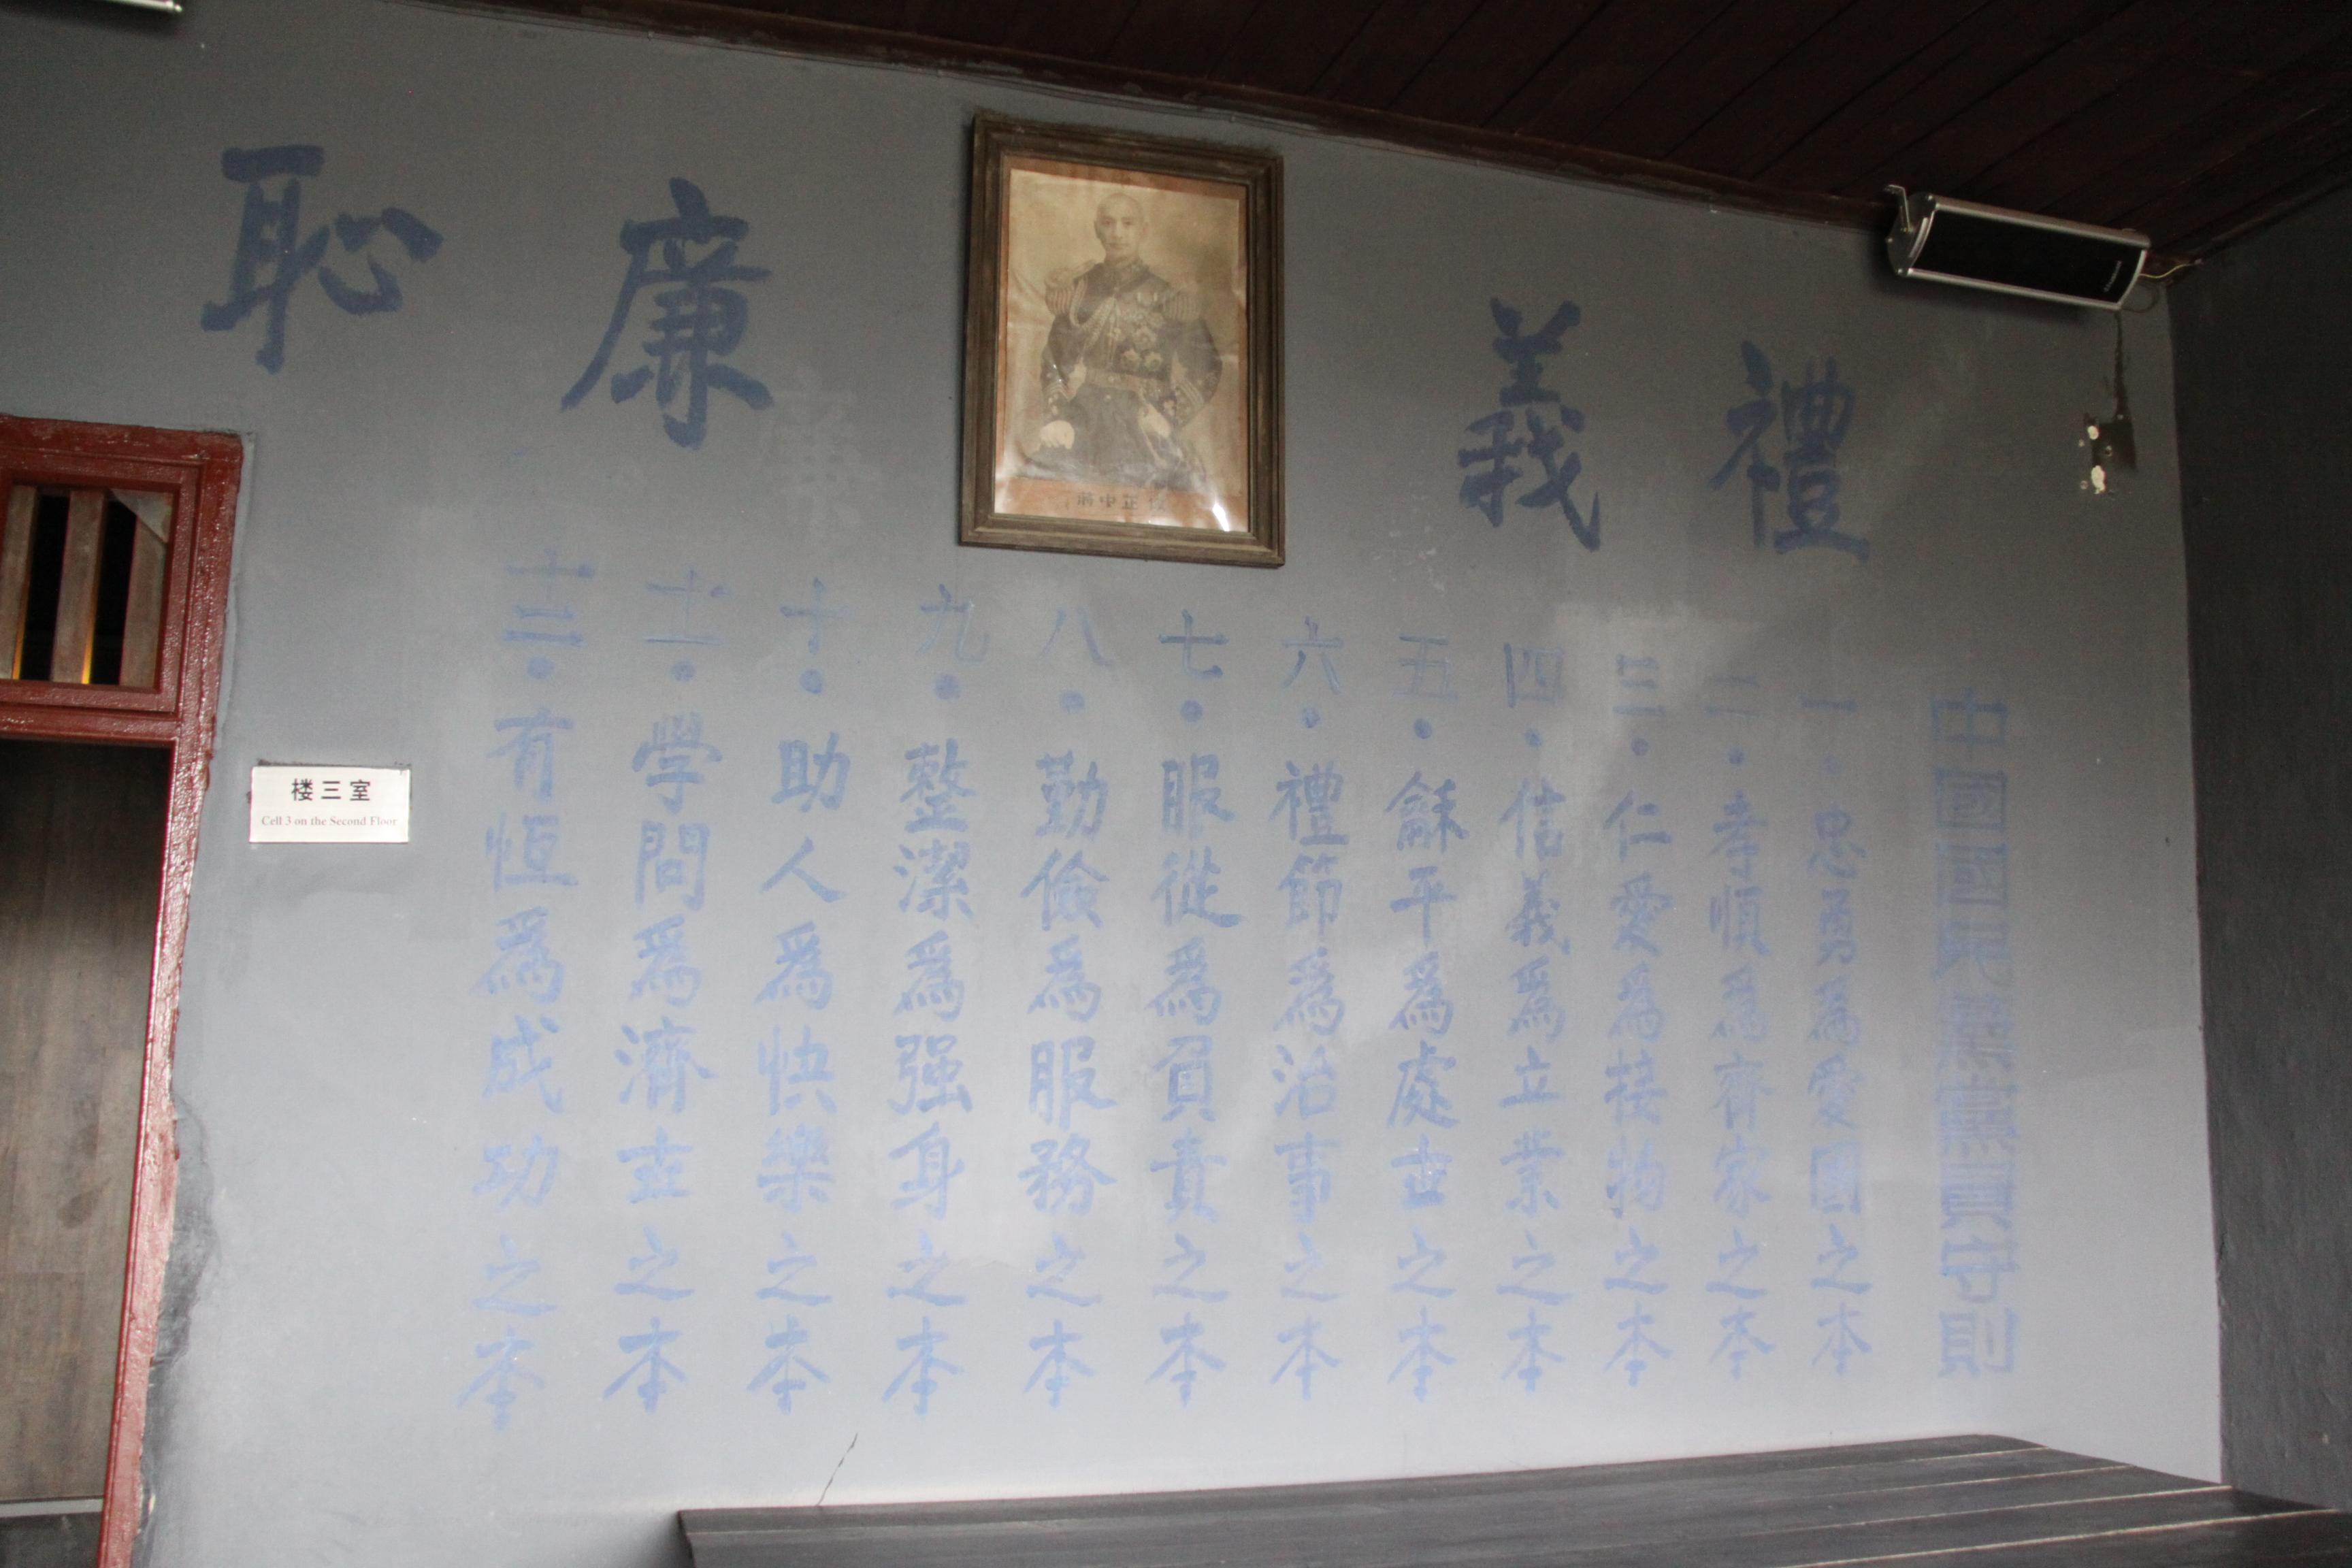 禮義廉恥
蔣中正
中國國民黨黨員守則
一·忠勇為愛國之本
二·孝順為齊家之本
三·仁愛為接物之本
四·信義為立業之本
五·龢平為處世之本
六·禮節為治事之本
七·服從為負責之本
八·勤儉為服務之本
九·整潔為强身之本
十·助人為快樂之本
十一·學問為濟世之本
十二·有恆為成功之本
楼三室
Cell 3 on the Second Floor